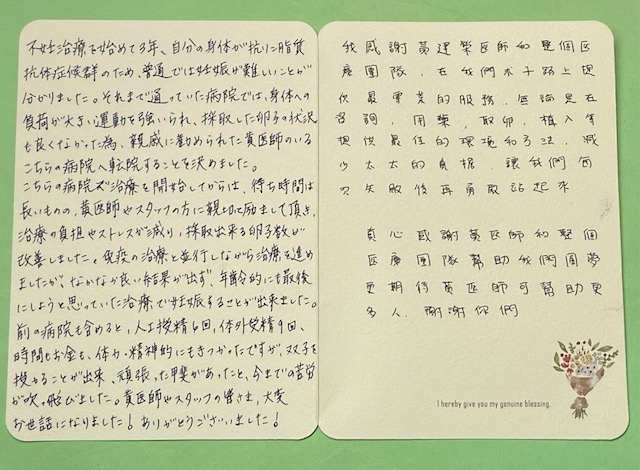 不妊治療を始めて3年、自分の身体が抗リン脂質
抗体症候群のため、普通では妊娠が難しいことが
分かりました。それまで通っていた病院では、身体への
負荷が大きい運動を強いられ、採取した卵子の状況
も良くなかった為、親戚に勧められた黄医師のいる
こちらの病院へ転院することを決めました。
こちらの病院で治療を開始してからは、待ち時間は
長いものの、黄医師やスタッフの方に親切に励まして頂き、
治療の負担やストレスが減り、採取出来る卵子の数が
改善しました。免疫の治療と並行しながら治療を進め
ましたが、なかなか良い結果が出ず、年齢的にも最後
にしようと思っていた治療で妊娠することが出来ました。
前の病院も含めると、人工授精6回、体外受精9回、
時間もお金も、体力・精神的にもきつかったですが、双子を
授かることが出来、頑張った甲斐があったと、今までの苦労
が吹っ飛びました。黄医師やスタッフの皆さま、大変
お世話になりました!ありがとうございました!
我感謝黃建榮医師和整個医
療團隊,在我們求子路上提
供最專業的服務,無論是在
咨詢,用藥,取卵,植入等
提供最佳的環境和方法,減
少太太的負担,讓我們每
次失敗後再勇敢站起來
真心感謝黃医師和整個
医療團隊幫助我們圓夢
更期待黃医師可幫助更
多人,謝謝你們
I hereby give you my genuine blessing.